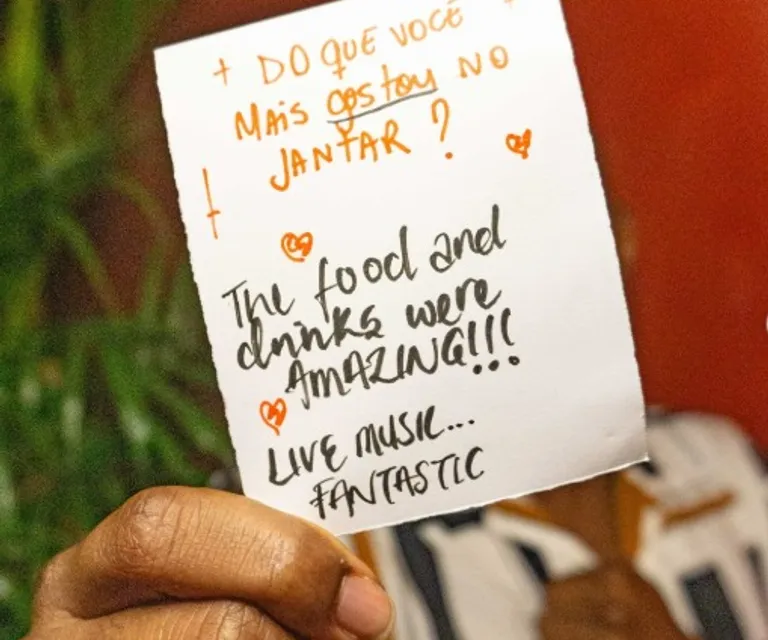 DO QUE VOCÊ
MAIS gostou NO
JANTAR ?
The food and
drinks were
AMAZING!!!
LIVE MUSIC...
FANTASTIC